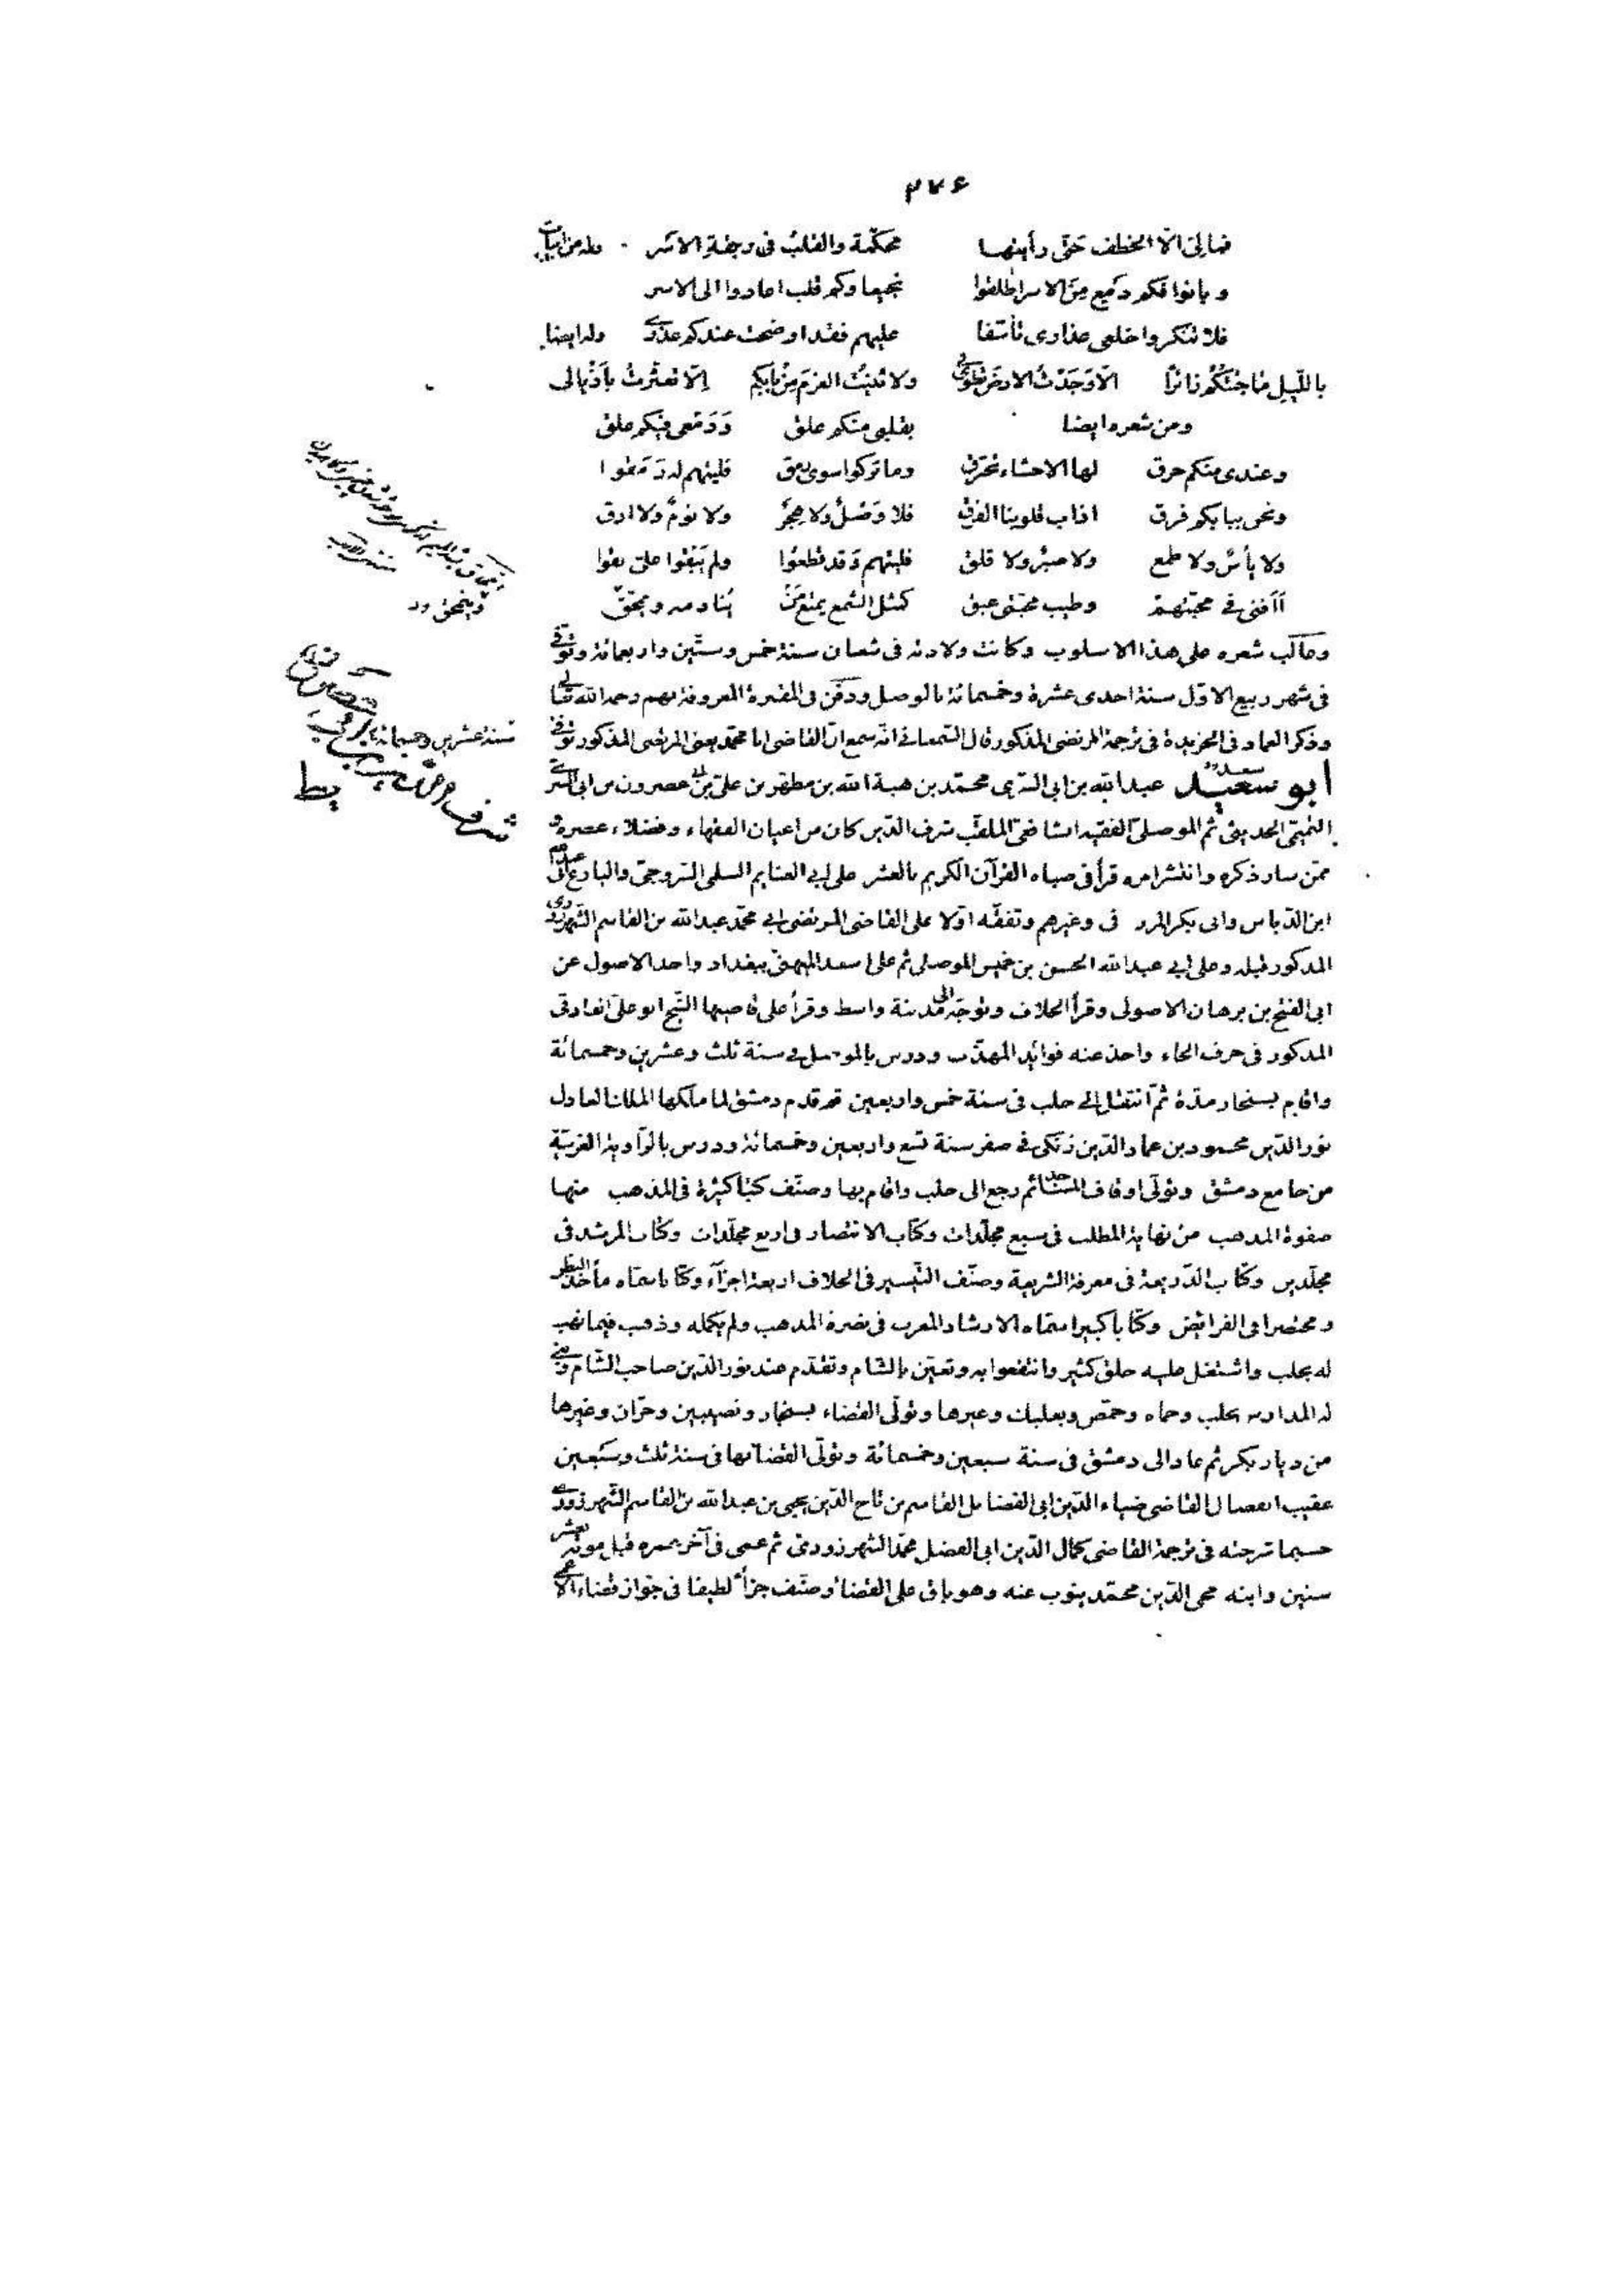 ٢٧٤
فمالى الا الخطف حتى رأيتها محكّمة والقلب فى رجفة الاسر وله من ابيات
وبانوا فكم دمع من الاسر اطلقوا نجيعا وكم قلب اعادوا الى الاسر
فلا تنكروا خلعى عذارى تأسفا عليهم فقد اوضحت عندكم عذرى وله ايضا
بالليل ما جئتكم زائرًا الّا وجدت الارض تطوى لى ولا ثنيت العزم عن بابكم الّا تعثرت باذيالى
ومن شعره ايضا بقلبى منكم علق ودمعى فيكم علق
وعندى منكم حرق لها الاحشاء تحترق وما تركوا سوى رمق فليتهم له رمقوا
ونحن ببابكم فرق اذاب قلوبنا الفرق فلا وصل ولا هجر ولا نوم ولا ارق
ولا يأس ولا طمع ولا صبر ولا قلق فليتهم وقد قطعوا ولم يبقوا على بقوا
أأفنى فى محبتهم وطيب محبتى عبق كمثل الشمع يمتع من ينادمه ويمحّق
وغالب شعره على هذا الاسلوب وكانت ولادته فى شعبان سنة خمس وستّين واربعمائة وتوفى
فى شهر ربيع الاوّل سنة احدى عشرة وخمسمائة بالموصل ودفن فى المقبرة المعروفة بهم رحمه الله تعالى
وذكر العماد فى الخريدة فى ترجمة المرتضى المذكور قال السمعانى انّه سمع انّ القاضى ابا محمّد يعنى المرتضى المذكور توفى
سنة عشرين وخمسمائة
ابو سعيد عبد الله بن ابى السّرى محمّد بن هبة الله بن مطهر بن علىّ بن ابى عصرون بن ابى السرى
التميمى الحديثى ثم الموصلى الفقيه الشافعى الملقّب شرف الدّين كان من اعيان الفقهاء وفضلاء عصره و
ممّن سار ذكره وانتشر امره قرأ فى صباه القرآن الكريم بالعشر على ابى الغنايم السلمى السروجى والبارع ابى عبد الله
ابن الدّباس وابى بكر المزرفى وغيرهم وتفقّه اوّلا على القاضى المرتضى ابى محمّد عبد الله بن القاسم الشهرزورى
المذكور قبله وعلى ابى عبد الله الحسن بن خميس الموصلى ثم على اسعد الميهنى ببغداد واخذ الاصول عن
ابى الفتح بن برهان الاصولى وقرأ الخلاف وتوجّه الى مدينة واسط وقرأ على قاضيها الشيخ ابو على الفارقى
المذكور فى حرف الحاء واخذ عنه فوائد المهذّب ودرس بالموصل فى سنة ثلث وعشرين وخمسمائة
واقام بسنجار مدّة ثمّ انتقل الى حلب فى سنة خمس واربعين ثم قدم دمشق لما ملكها الملك العادل
نور الدّين محمود بن عماد الدّين زنكى فى صفر سنة تسع واربعين وخمسمائة ودرس بالزّاوية الغربيّة
من جامع دمشق وتولّى اوقاف المساجد ثم رجع الى حلب واقام بها وصنّف كتبًا كثيرة فى المذهب منها
صفوة المذهب من نهاية المطلب فى سبع مجلّدات وكتاب الانتصار فى اربع مجلّدات وكتاب المرشد فى
مجلّدين وكتاب الذّريعة فى معرفة الشريعة وصنّف التّيسير فى الخلاف اربعة اجزآء وكتابا سمّاه مأخذ النظر
ومختصرا فى الفرائض وكتابا كبيرا سمّاه الارشاد المغرب فى نصرة المذهب ولم يكمله وذهب فيما نهب
له بحلب واشتغل عليه خلق كثير وانتفعوا به وتعيّن بالشام وتقدّم عند نور الدّين صاحب الشّام وبنى
له المدارس بحلب وحماه وحمص وبعلبك وغيرها وتولّى القضاء بسنجار ونصيبين وحرّان وغيرها
من ديار بكر ثم عاد الى دمشق فى سنة سبعين وخمسمائة وتولّى القضاء بها فى سنة ثلث وسبعين
عقيب انفصال القاضى ضياء الدّين ابى الفضايل القاسم بن تاج الدّين يحيى بن عبد الله بن القاسم الشهرزورى
حسبما شرحته فى ترجمة القاضى كمال الدّين ابى الفضل محمّد الشهرزورى ثم عمى فى آخر عمره قبل موته بعشر
سنين وابنه محى الدّين محمّد ينوب عنه وهو باق على القضاء وصنّف جزأ لطيفا فى جواز قضاء الاعمى